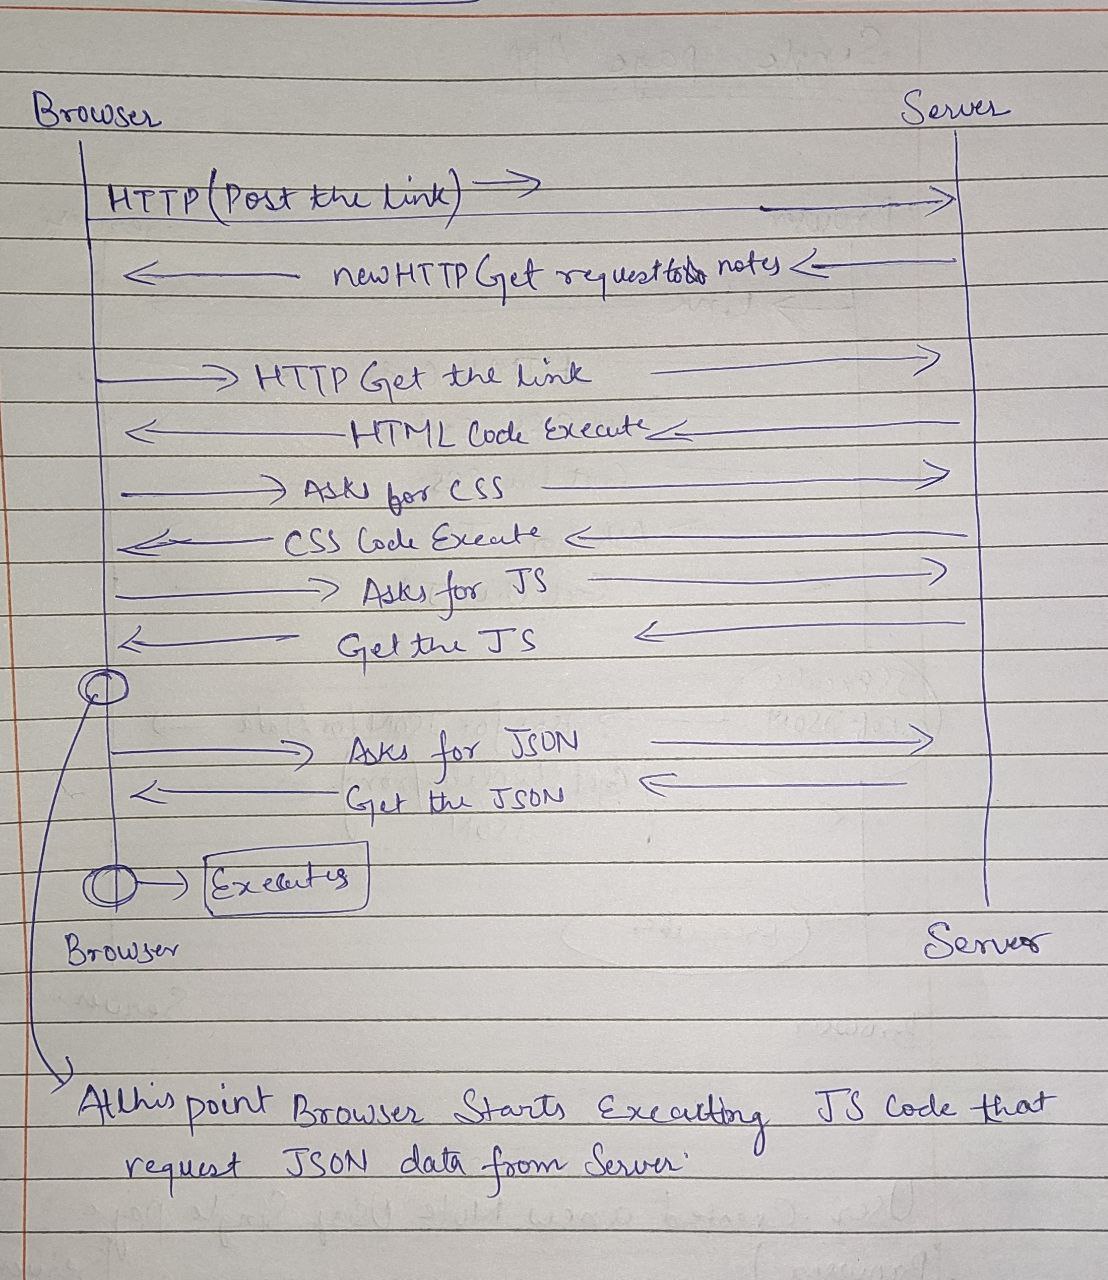 Browser Server
HTTP (Post the link)
new HTTP Get request to notes
HTTP Get the link
HTML Code Execute
Asks for CSS
CSS Code Exceute
Asks for JS
Get the JS
Asks for JSON
Get the JSON
Executes
Browser Server
At this point Browser Starts Executing JS Code that
request JSON data from Server.